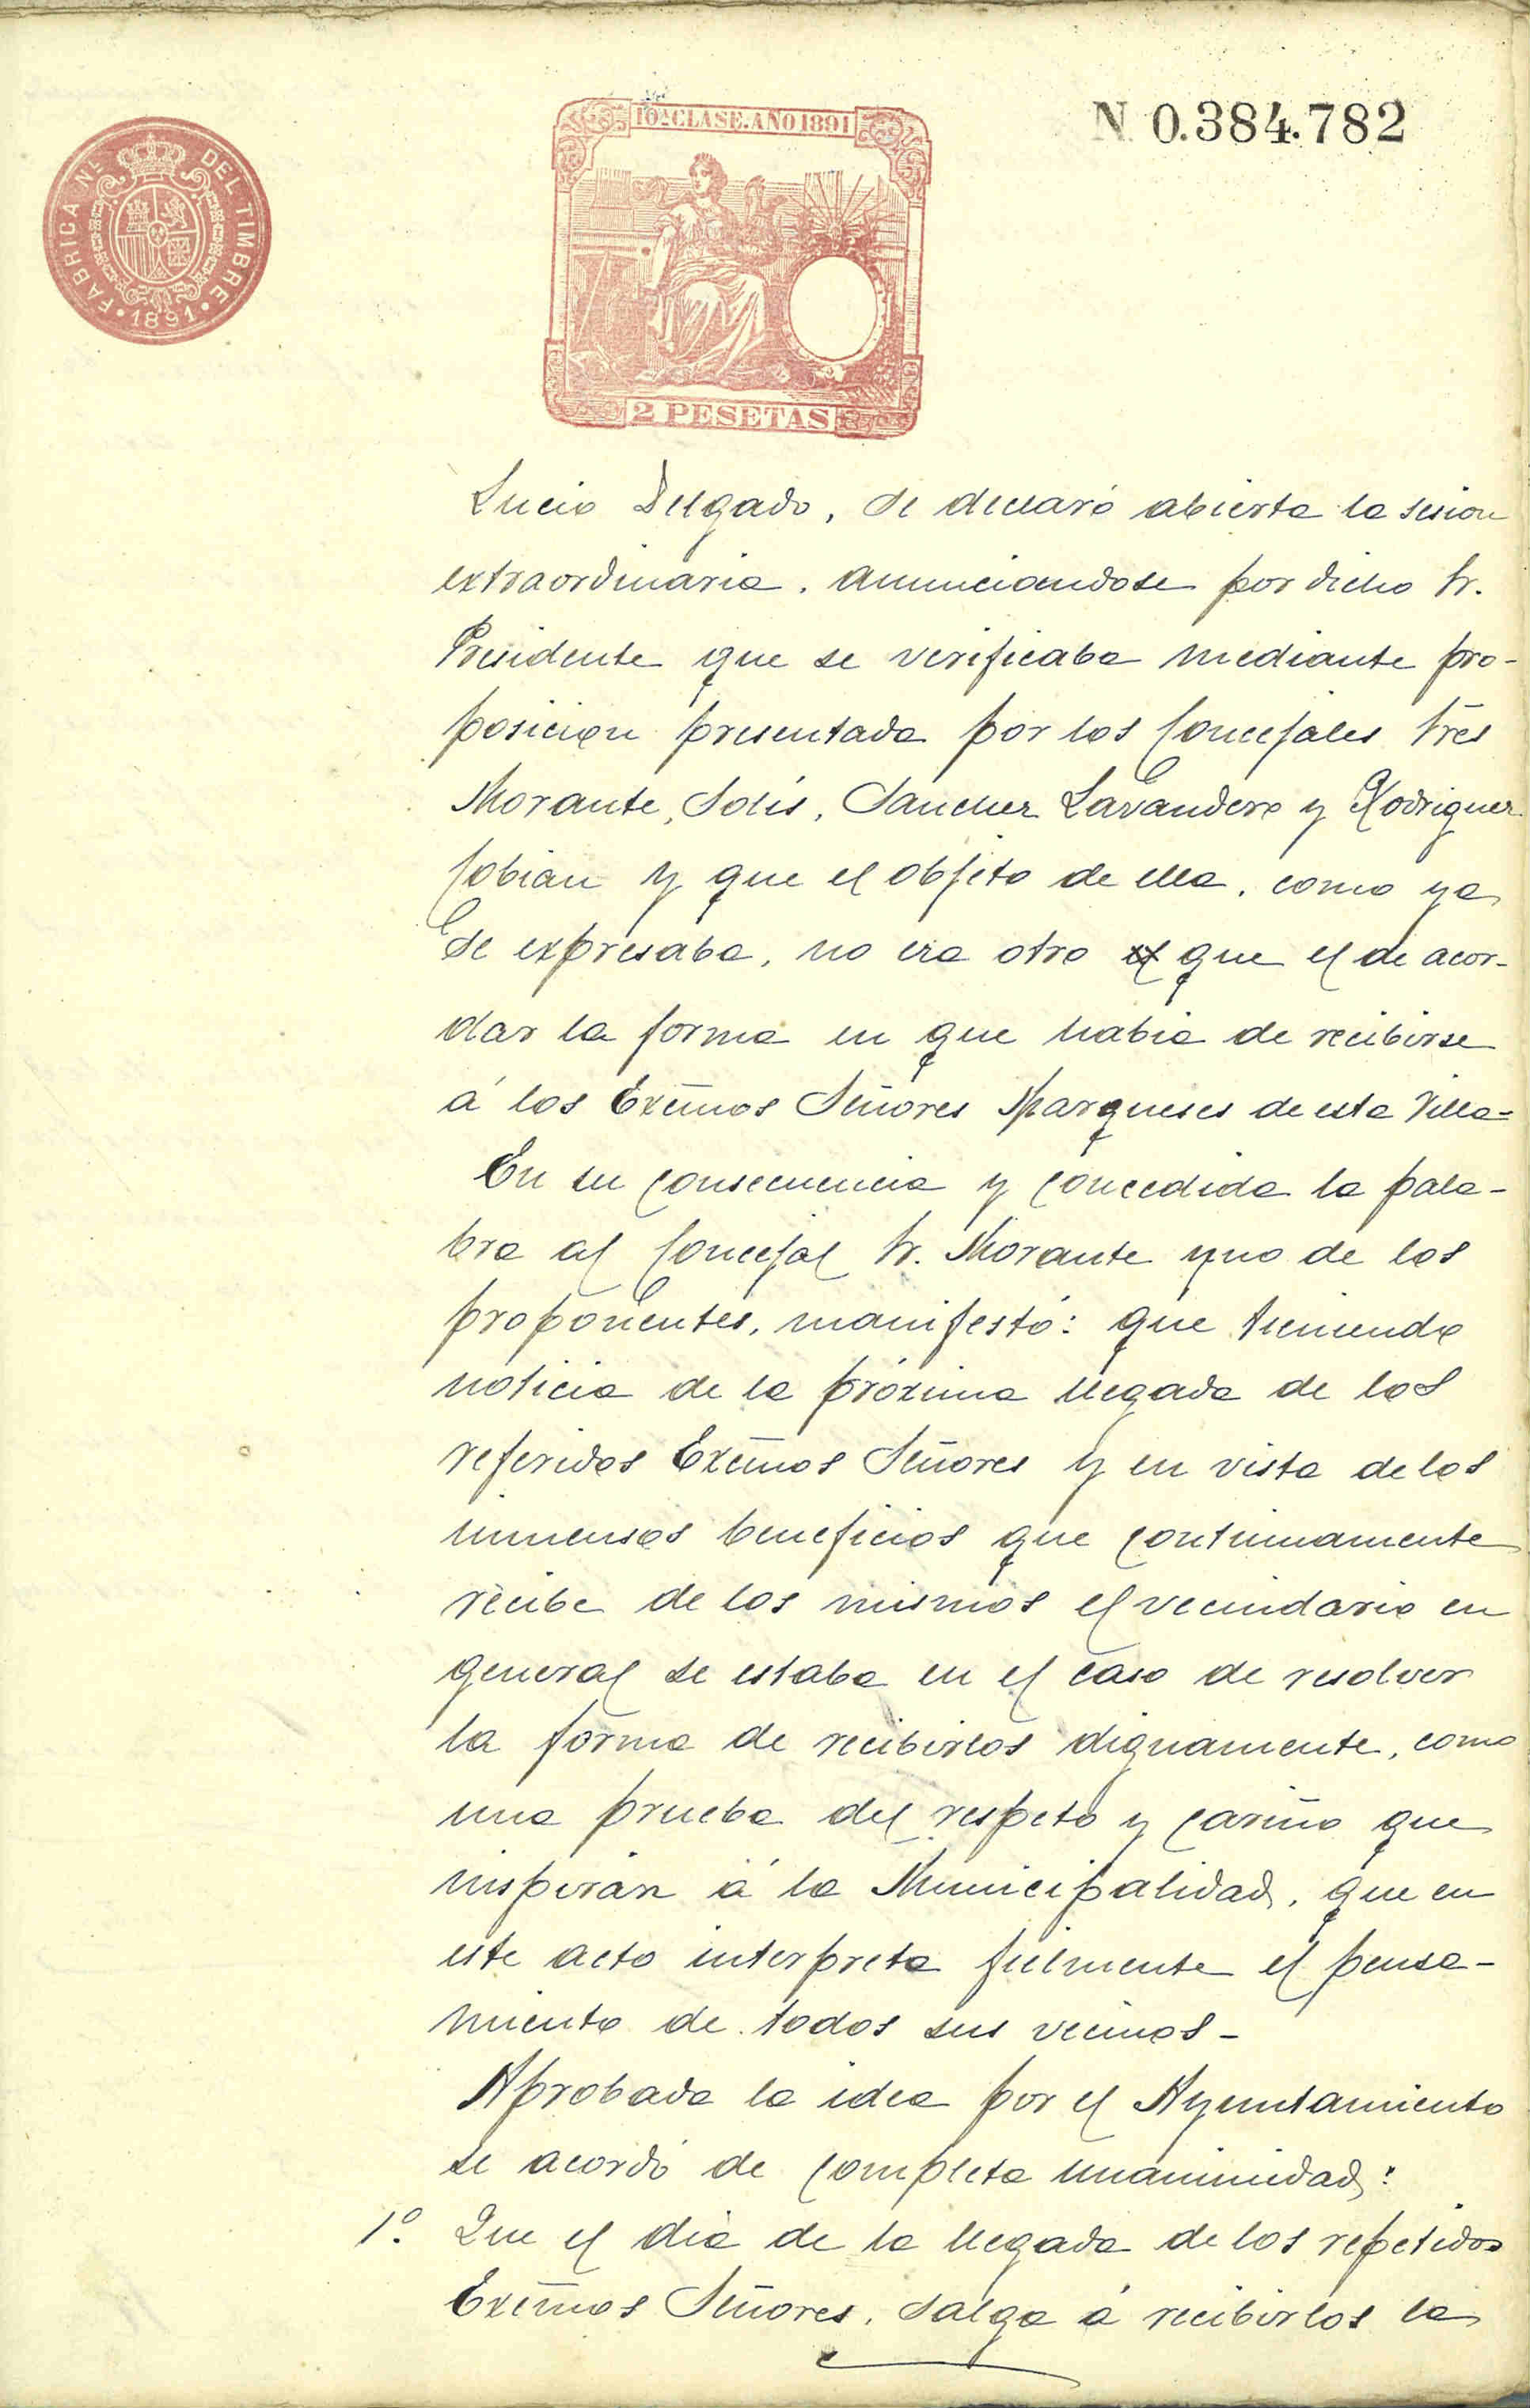 FABRICA NL DEL TIMBRE
1891
10ª CLASE. AÑO 1891
N 0.384.782
2 PESETAS
Lucio Delgado, se declaró abierta la sesion
extraordinaria, anunciandose por dicho Sr.
Presidente que se verificaba mediante pro-
posicion presentada por los Concejales Sres
Morante, Solis, Sanchez Lavandero y Rodriguez
Cobian y que el objeto de ella, como ya
se expresaba, no era otro el que el de acor-
dar la forma en que habia de recibirse
á los Excmos Señores Marqueses de esta Villa=
En su consecuencia y concedida la pala-
bra al Concejal Sr. Morante uno de los
proponentes, manifestó: que teniendo
noticia de la próxima llegada de los
referidos Excmos Señores y en vista de los
inmensos beneficios que continuamente
recibe de los mismos el vecindario en
general se estaba en el caso de resolver
la forma de recibirlos dignamente, como
una prueba del respeto y cariño que
inspiran á la Municipalidad, que en
este acto interpreta fielmente el pensa-
miento de todos sus vecinos-
Aprobada la idea por el Ayuntamiento
se acordó de completa unanimidad:
1º. Que el dia de la llegada de los repetidos
Excmos Señores, salga á recibirlos la